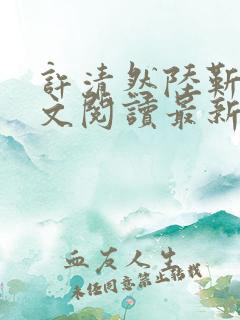 許清然陸靳
文閱讀最新
血友人生
未經同意禁止轉載